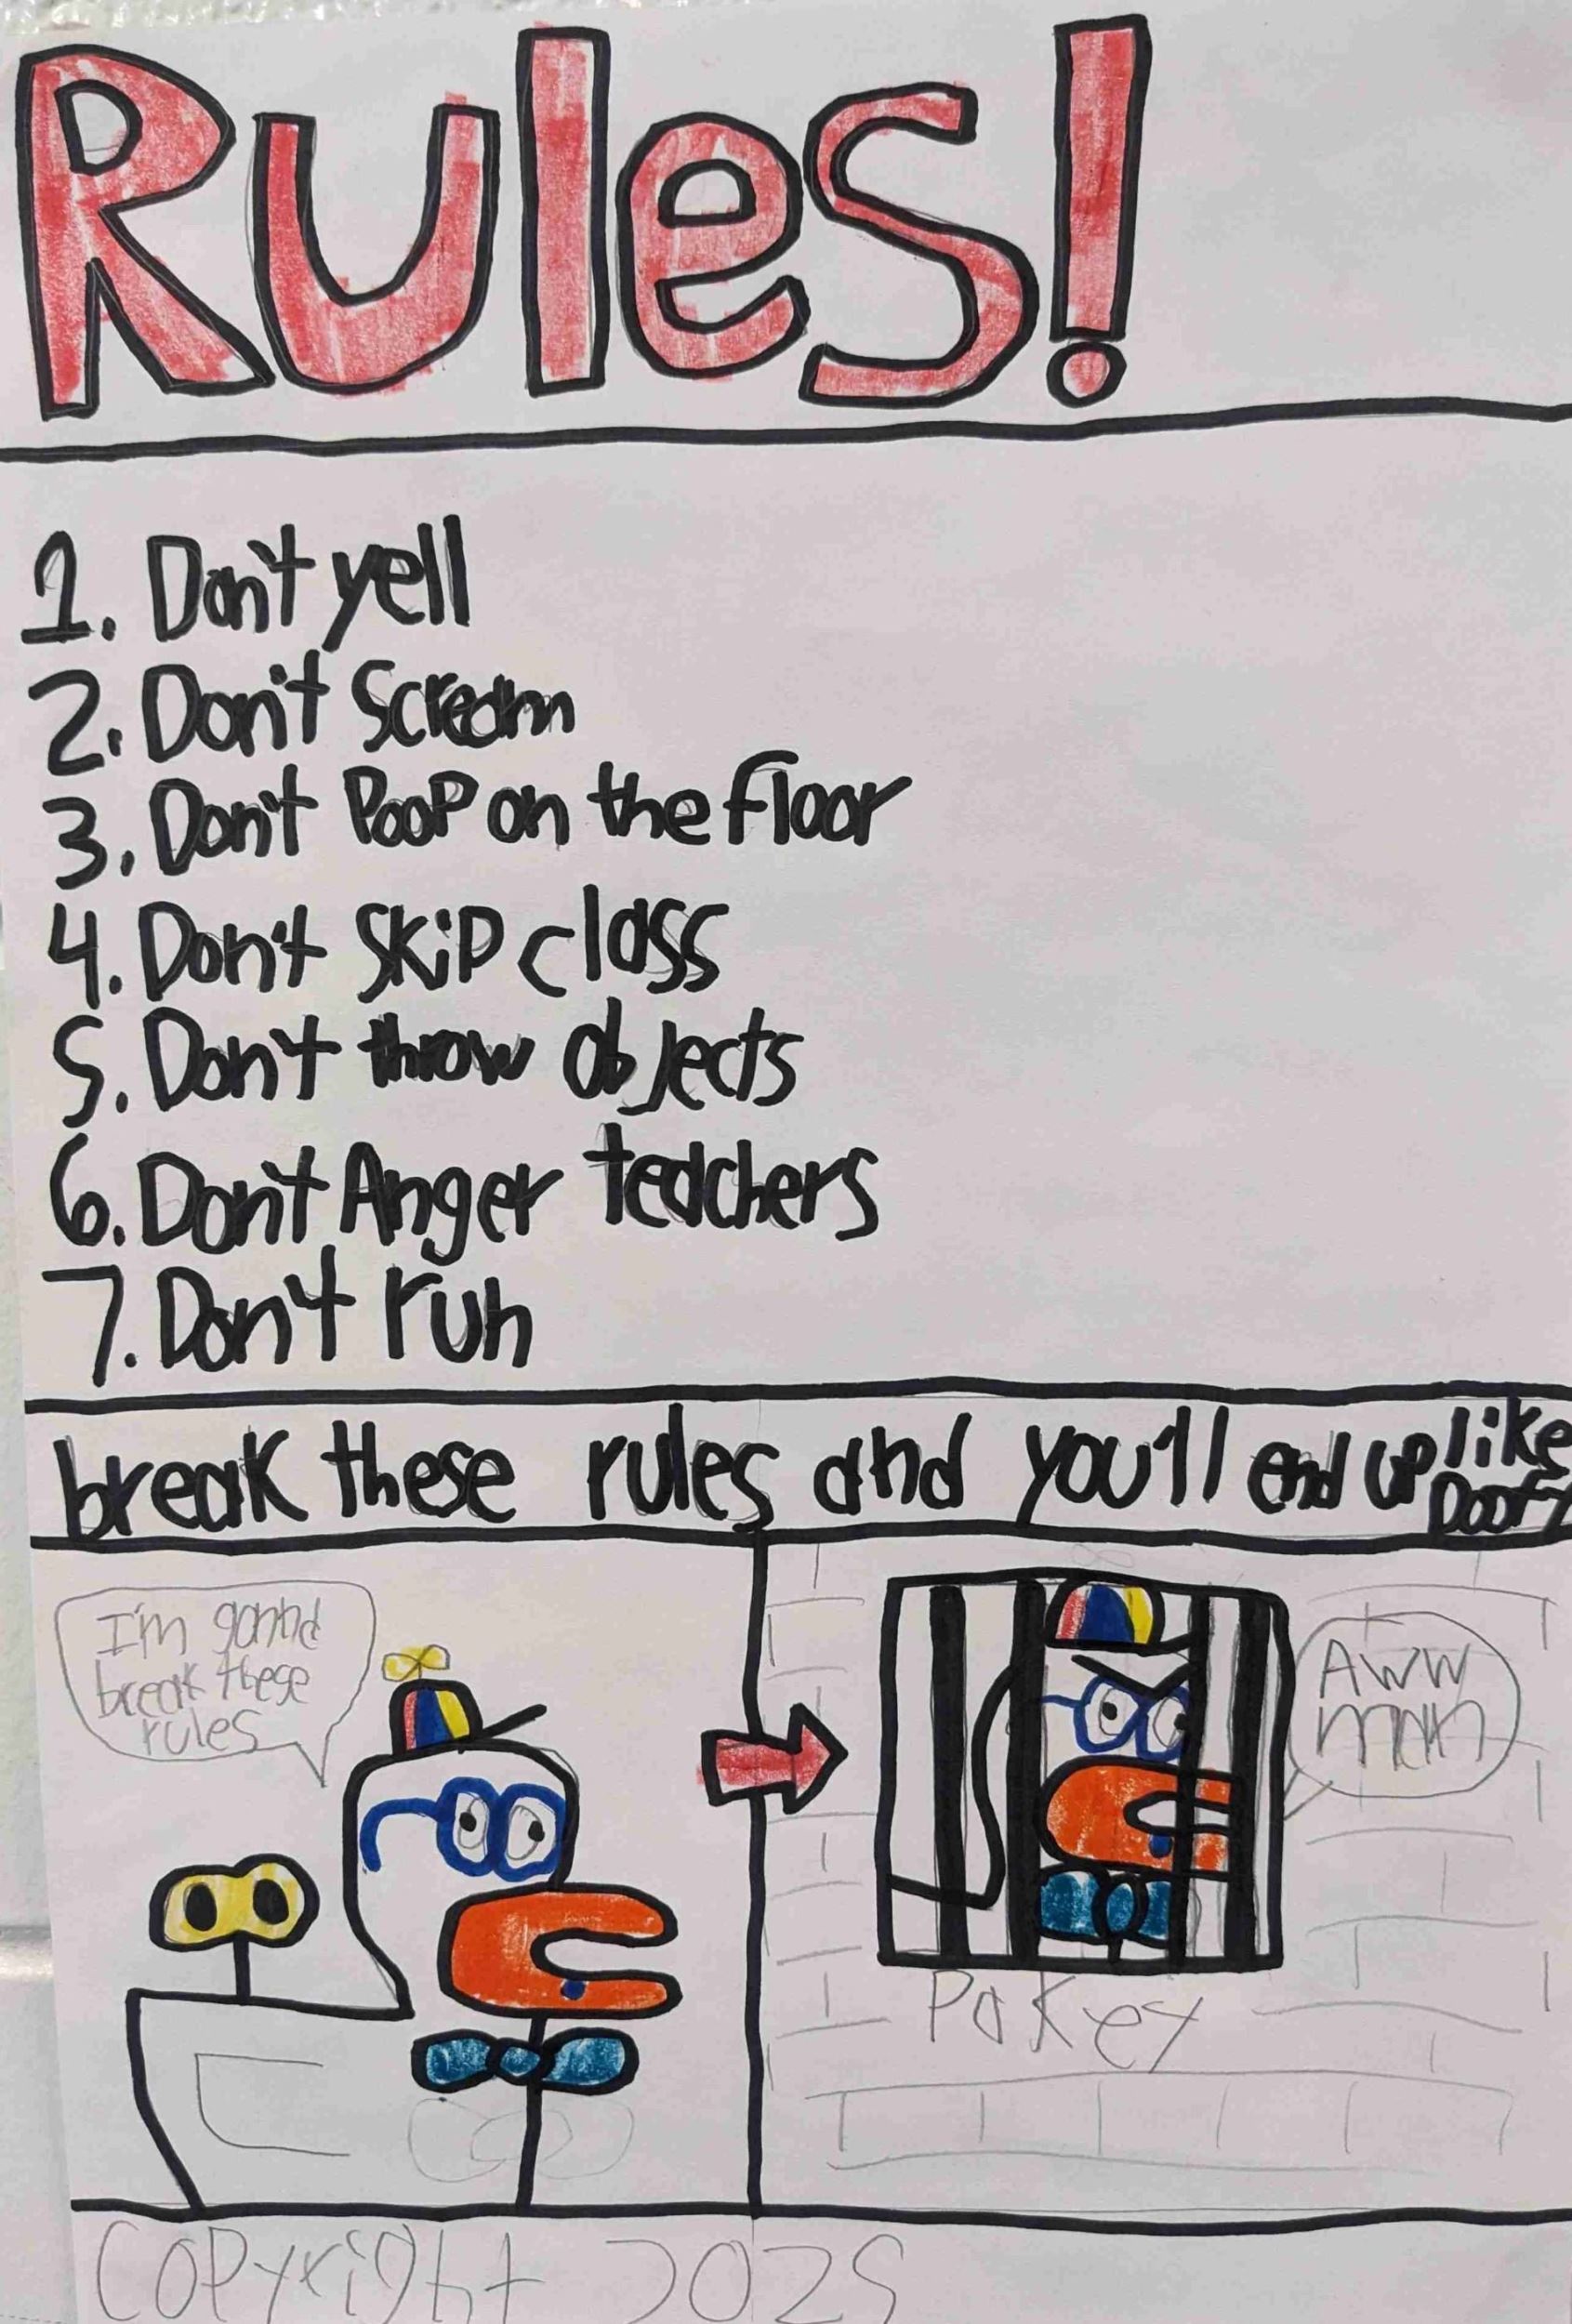 Rules!
1. Don't yell
2. Don't Scream
3. Don't Poop on the floor
4. Don't SkiP class
5. Don't throw objects
6. Don't Anger teachers
7. Don't run
break these rules and you'll end up like Doofy
I'm gonna
break these
rules
Aww
man
Pokey
Copyright 2025